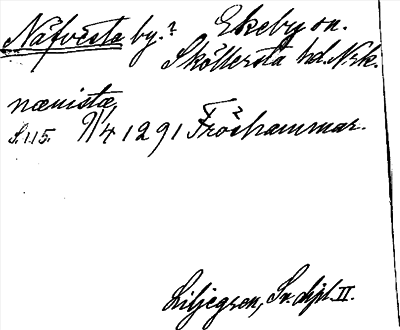 Näfvesta by.? Ekeby sn.
Sköllersta hd. Nrk.
nænistæ,
S. 115. 9/4 1291 Fröshammar.
?
Liljegren, Sv. dipl. II.